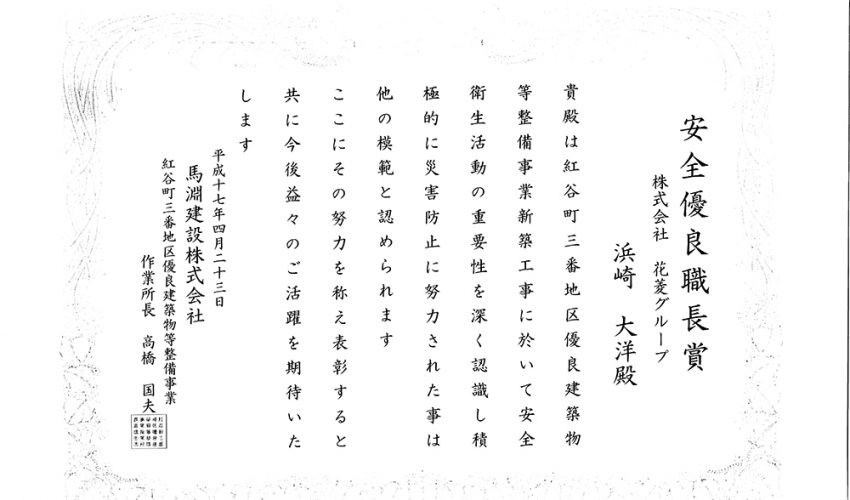 安全優良職長賞
株式会社 花菱グループ
浜崎 大洋殿
貴殿は紅谷町三番地区優良建築物
等整備事業新築工事に於いて安全
衛生活動の重要性を深く認識し積
極的に災害防止に努力された事は
他の模範と認められます
ここにその努力を称え表彰すると
共に今後益々のご活躍を期待いた
します
平成十七年四月二十三日
紅谷町三番地区優良建築物等整備事業
馬淵建設株式会社
作業所長 高橋 国夫